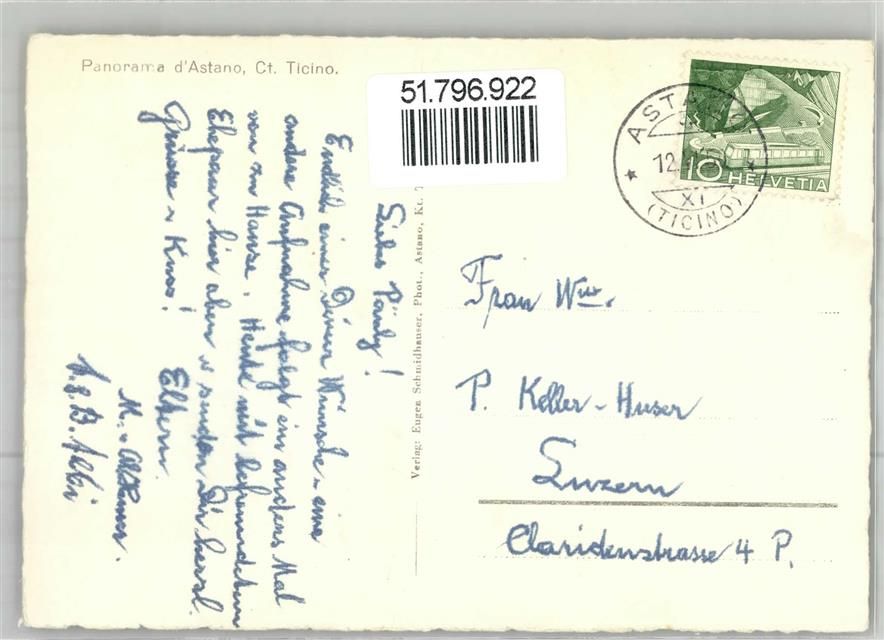 Panorama d'Astano, Ct. Ticino.
51.796.922
ASTANO
12.
XI
(TICINO)
10 HELVETIA
Liebes Päuly!
Endlich einer Deiner Wünsche, eine
andere Aufnahme folgt ein anderes Mal
von zu Hause. Heute mit befreundetem
Ehepaar hier oben u. senden Dir herzl.
Grüsse u. Kuss! Eltern.
M. u.
Verlag: Eugen Schmidhauser, Phot., Astano, Kt. T
Frau Wwe.
P. Keller-Huser
Luzern
Claridenstrasse 4 P.